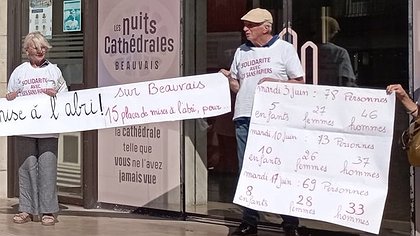 LES
nuits
CATHÉDRALES
BEAUVAIS
la cathédrale
telle que
vous ne l'avez
jamais vue
SOLIDARITÉ
AVEC
LES SANS PAPIERS
mise à l'abri !
sur Beauvais
15 places de mises à l'abi, pour
SOLIDARITÉ
AVEC
LES SANS PAPIERS
mardi 3 juin : 78 Personnes
5 27 46
enfants femmes hommes
mardi 10 juin : 73 Personnes
10 26 37
enfants femmes hommes
mardi 17 juin : 69 Personnes
8 28 33
enfants femmes hommes